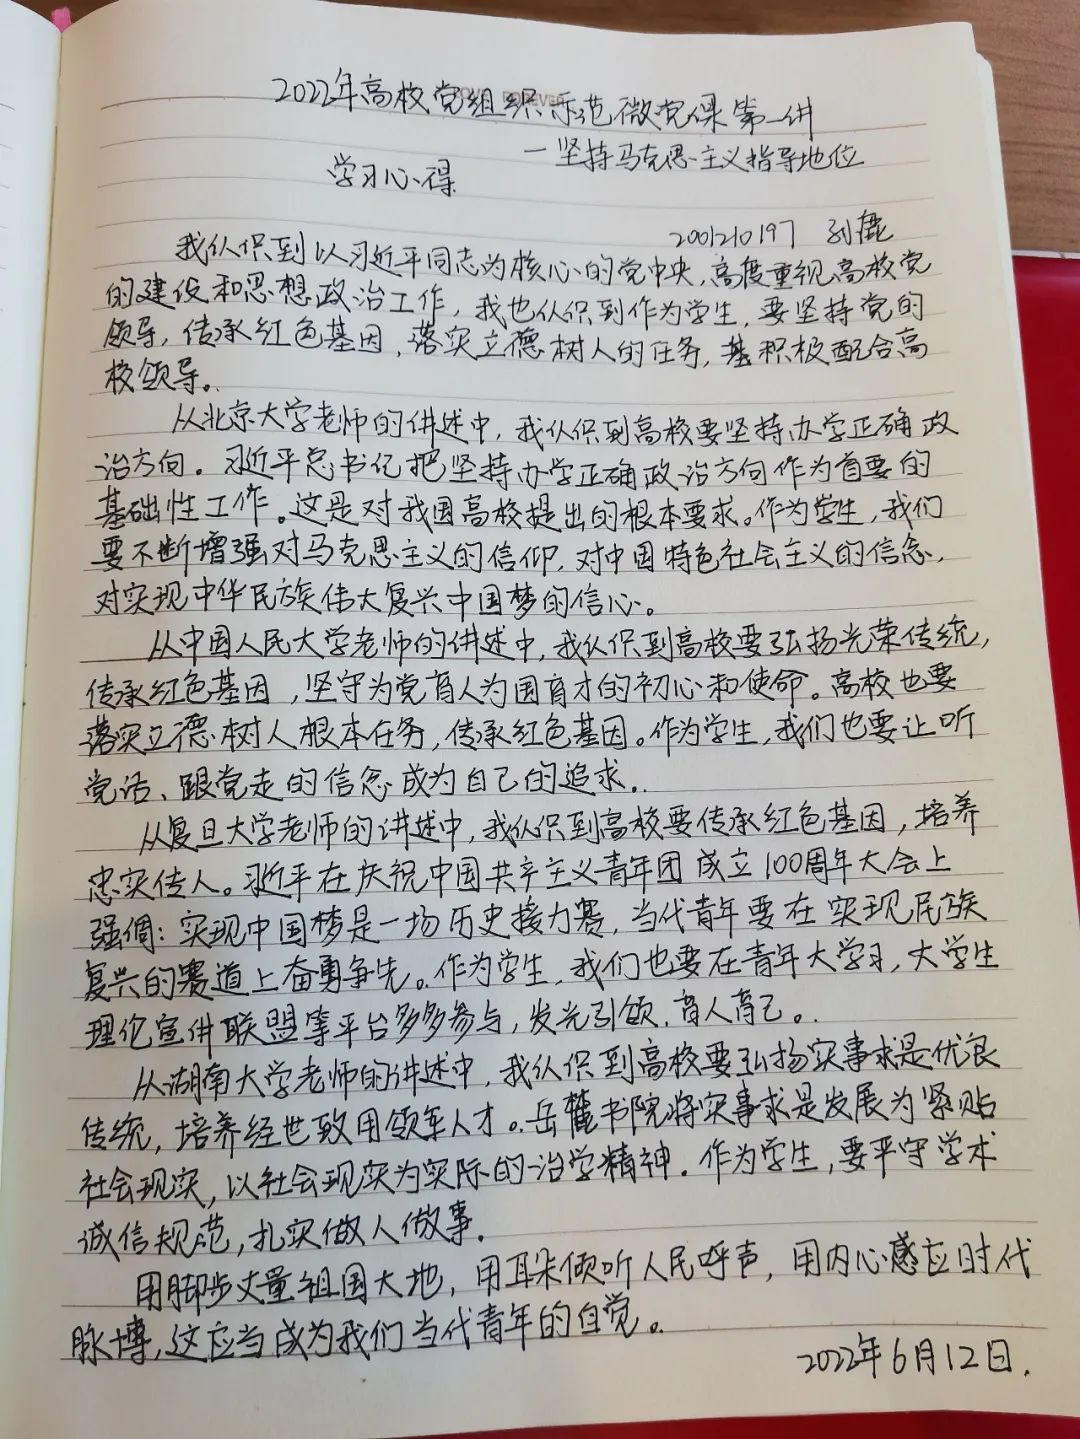 2022年高校党组织示范微党课第一讲
—坚持马克思主义指导地位
学习心得
2001210197 孙鹿
我认识到以习近平同志为核心的党中央,高度重视高校党
的建设和思想政治工作,我也认识到作为学生,要坚持党的
领导,传承红色基因,落实立德树人的任务,积极配合高
校领导。
从北京大学老师的讲述中,我认识到高校要坚持办学正确政
治方向。习近平总书记把坚持办学正确政治方向作为首要的
基础性工作。这是对我国高校提出的根本要求。作为学生,我们
要不断增强对马克思主义的信仰,对中国特色社会主义的信念,
对实现中华民族伟大复兴中国梦的信心。
从中国人民大学老师的讲述中,我认识到高校要弘扬光荣传统,
传承红色基因,坚守为党育人为国育才的初心和使命。高校也要
落实立德树人根本任务,传承红色基因。作为学生,我们也要让听
党话、跟党走的信念成为自己的追求。
从复旦大学老师的讲述中,我认识到高校要传承红色基因,培养
忠实传人。习近平在庆祝中国共产主义青年团成立100周年大会上
强调:实现中国梦是一场历史接力赛,当代青年要在实现民族
复兴的赛道上奋勇争先。作为学生,我们也要在青年大学习,大学生
理论宣讲联盟等平台多多参与,发光引领,育人育己。
从湖南大学老师的讲述中,我认识到高校要弘扬实事求是优良
传统,培养经世致用领军人才。岳麓书院将实事求是发展为紧贴
社会现实,以社会现实为实际的治学精神。作为学生,要严守学术
诚信规范,扎实做人做事.
用脚步丈量祖国大地,用耳朵倾听人民呼声,用内心感应时代
脉搏,这应当成为我们当代青年的自觉。
2022年6月12日.